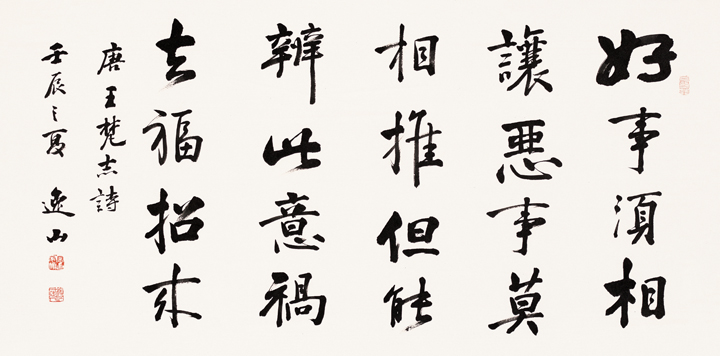 好事須相
讓惡事莫
相推但能
辨此意禍
去福招來
唐王梵志詩
壬辰之夏 逸山